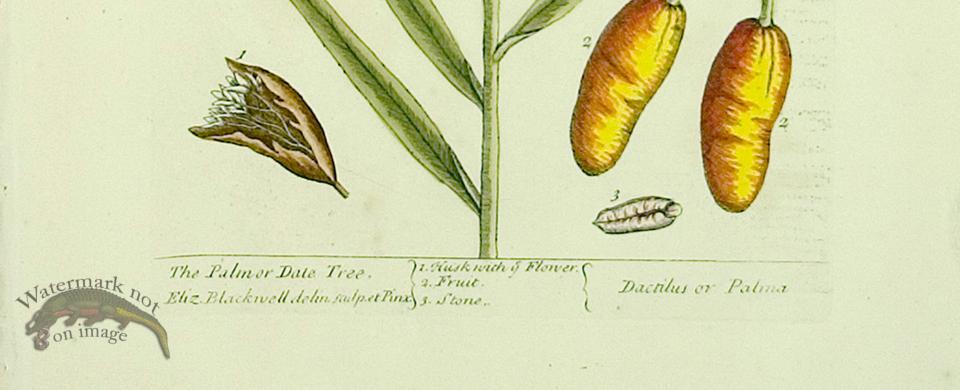 1
2
2
3
The Palm or Date Tree.
Eliz. Blackwell delin. sculp. et Pinx.
1. Husk with ye Flower.
2. Fruit.
3. Stone.
Dactilus or Palma
Watermark not
on image